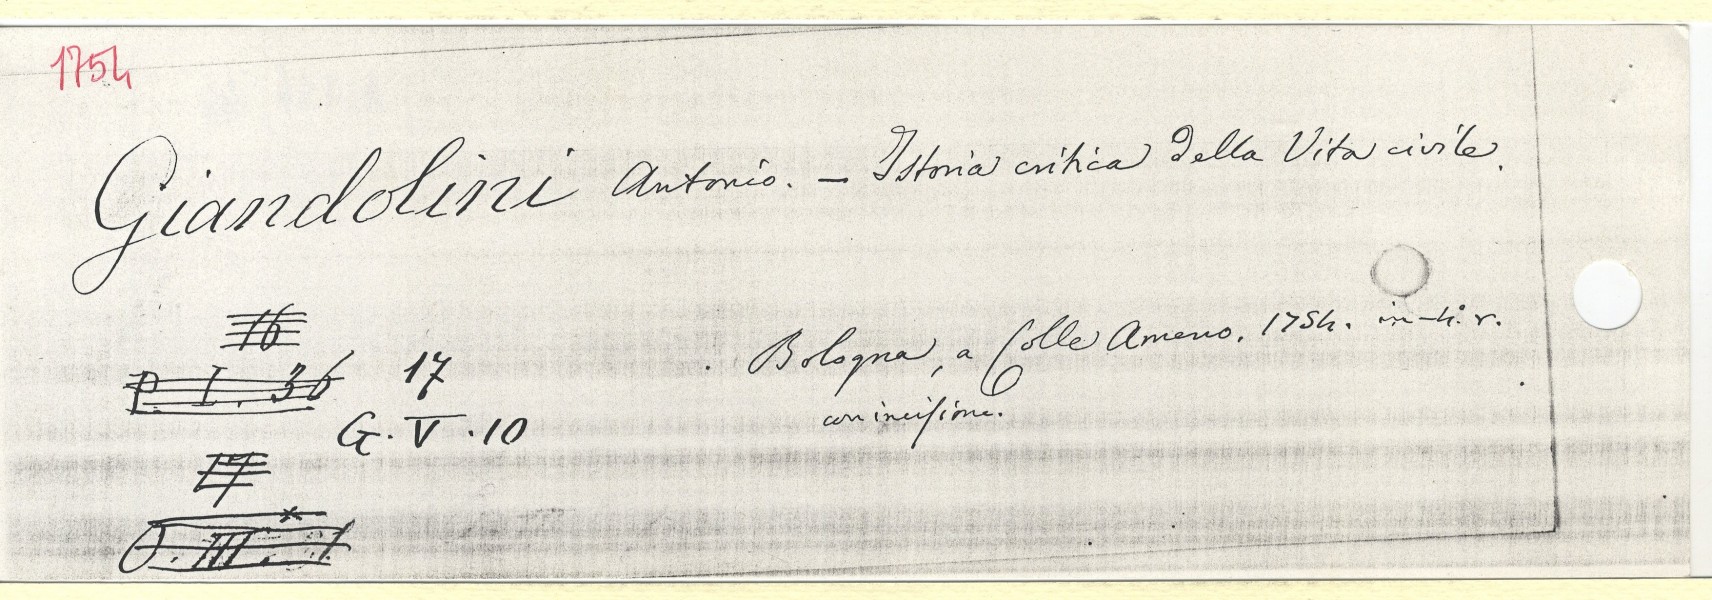 1754
Giandolini Antonio. – Istoria critica della Vita civile.
16
P. I. 36
17
G. V. 10
. Bologna, a Colle Ameno. 1754. in-4. r.
con incisione.
17